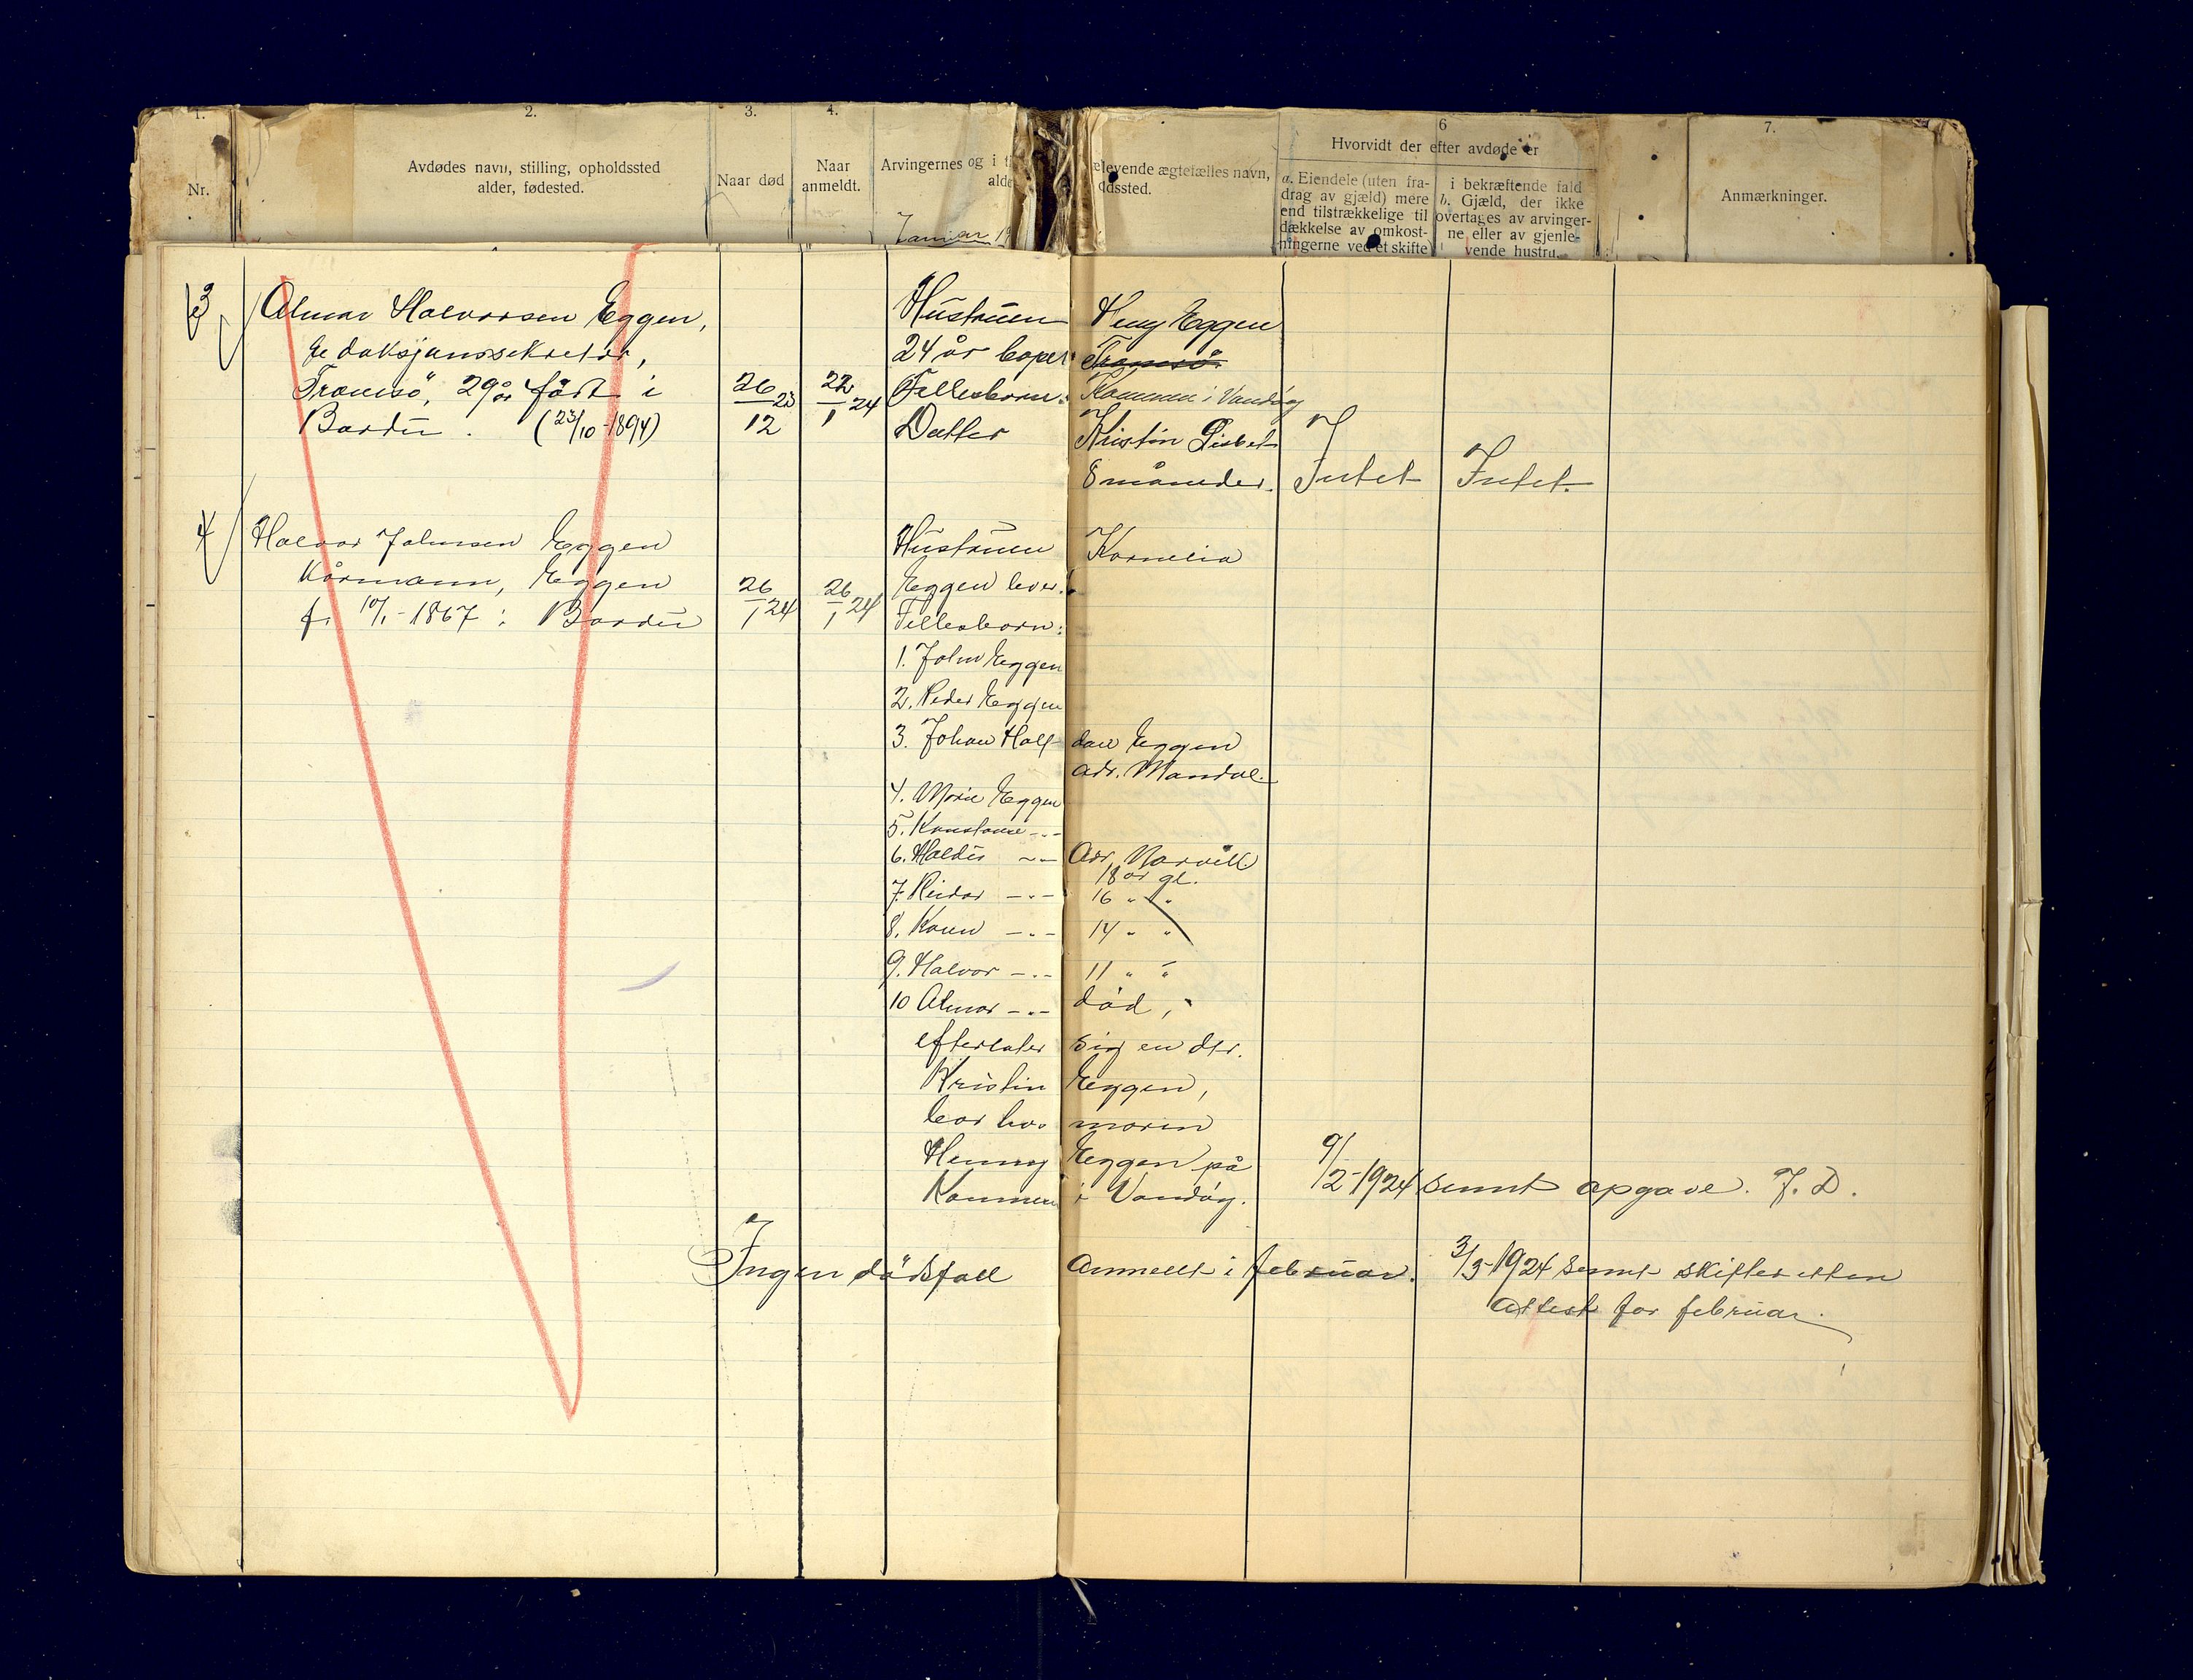 1.
2.
3.
4.
6
7.
Nr.
Avdødes navn, stilling, opholdssted
alder, fødested.
Naar død
Naar
anmeldt.
Arvingernes og i
alde
levende ægtefælles navn,
dssted.
Hvorvidt der efter avdøde er
a. Eiendele (uten fra-
drag av gjæld) mere
end tilstrækkelige til
dækkelse av omkost-
ningerne ved et skifte
i bekræftende fald
b. Gjæld, der ikke
overtages av arvinger-
ne eller av gjenle-
vende hustru.
Anmærkninger.
Januar 19
3 Almar Halvorsen Eggen,
redaksjonssekretær,
Tromsö, 29 år född i
Bardu. (23/10-1894)
26/12 23
22/1 24
Hustruen Heny Eggen
24 år boper Tromsö
Fellesborn: Kammen i Vandøy
Datter Kristin Lisbet
8 måneder. Intet Intet.
4 Halvor Johnsen Eggen
Kårmann, Eggen
f. 10/1-1867 i Bardu
26/1 24
26/1 24
Hustruen Kornelia
Eggen lever.
Fellesborn:
1. John Eggen
2. Peder Eggen
3. Johan Half dan Eggen
adr. Mandal.
4. Marie Eggen
5. Konstanse -"-
6. Haldis -"- Adr. Narvik
18 år gl.
7. Reidar -"- 16 " "
8. Kaun -"- 14 " "
9. Halvor -"- 11 " "
10 Almar -"- död,
efterlater sig en dtr.
Kristin Eggen,
bor hos moren
Henny Eggen på
Kammen i Vandøy.
9/2-1924 sennt opgave. J. D.
Ingen dödsfall anmellt i februar. 3/3-1924 sennt skifteretten
attest for februar.